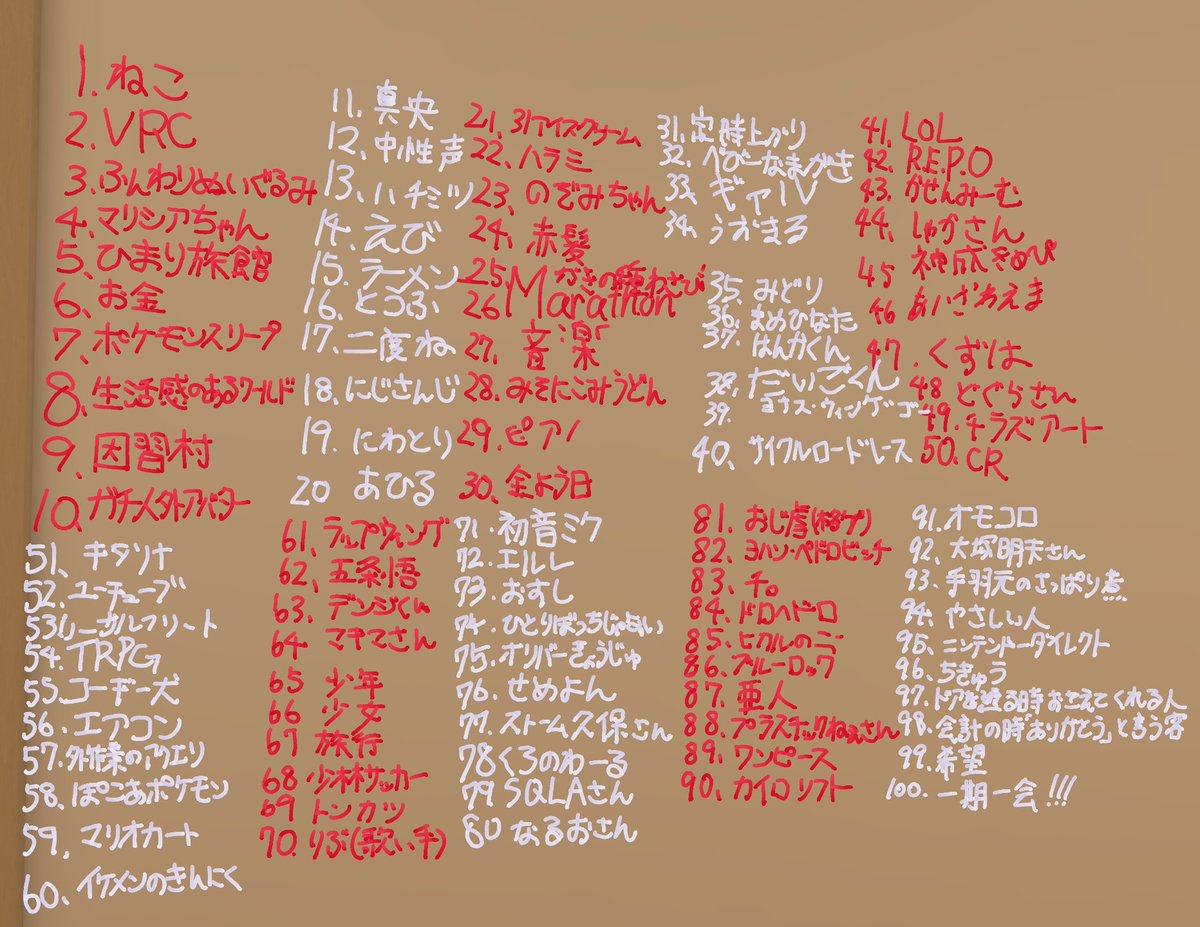 1. ねこ
2. VRC
3. ふんわりぬいぐるみ
4. マリシアちゃん
5. ひまり旅館
6. お金
7. ポケモンスリープ
8. 生活感のあるワールド
9. 因習村
10. ガチ人外アバター
11. 真央
12. 中性声
13. ハチミツ
14. えび
15. ラーメン
16. とうふ
17. 二度ね
18. にじさんじ
19. にわとり
20 あひる
21. 31アイスクリーム
22. ハラミ
23. のぞみちゃん
24. 赤髪
25. かきの種わさび
26 Marathon
27. 音楽
28. みそにこみうどん
29. ピアノ
30. 金よう日
31. 定時上がり
32. へびーなまがき
33. ギアIV
34. うおまる
35. みどり
36. まめひなた
37. はんかくん
38. だいごくん
39. ヨナス・ウィンゲゴー
40. サイクルロードレース
41. LOL
42. R.E.P.O
43. かせんみーむ
44. しゃかさん
45 神成きゅぴ
46 あいざわえま
47. くずは
48 どぐらさん
49. チラズアート
50. CR
51. キタソナ
52. ユーチューブ
53. リーガルフリート
54. TRPG
55. コーギー犬
56. エアコン
57. 外秘のアウエリ
58. ぽこあポケモン
59. マリオカート
60. イケメンのきんにく
61. ラップウィング
62. 五条悟
63. デンジくん
64 マキマさん
65 少年
66 少女
67 旅行
68 少林サッカー
69 トンカツ
70. りぶ(歌い手)
71. 初音ミク
72. エルレ
73. おすし
74. ひとりぼっちじゃない
75. オリバーきょうじゅ
76. せめよん
77. ストーム久保さん
78 くろのわーる
79 SQLAさん
80 なるおさん
81. おじ虐(格ゲ)
82. ヨハン・ペドロビッチ
83. チ。
84. ドロヘドロ
85. ヒカルのご
86. ブルーロック
87. 亜人
88. プラスチックねぇさん
89. ワンピース
90. カイロソフト
91. オモコロ
92. 大塚明夫さん
93. 手羽元のさっぱり煮
94. やさしい人
95. ニンテンドーダイレクト
96. ちきゅう
97. ドアを通る時おさえてくれる人
98. 会計の時「ありがとう」と言う客
99. 希望
100. 一期一会!!!